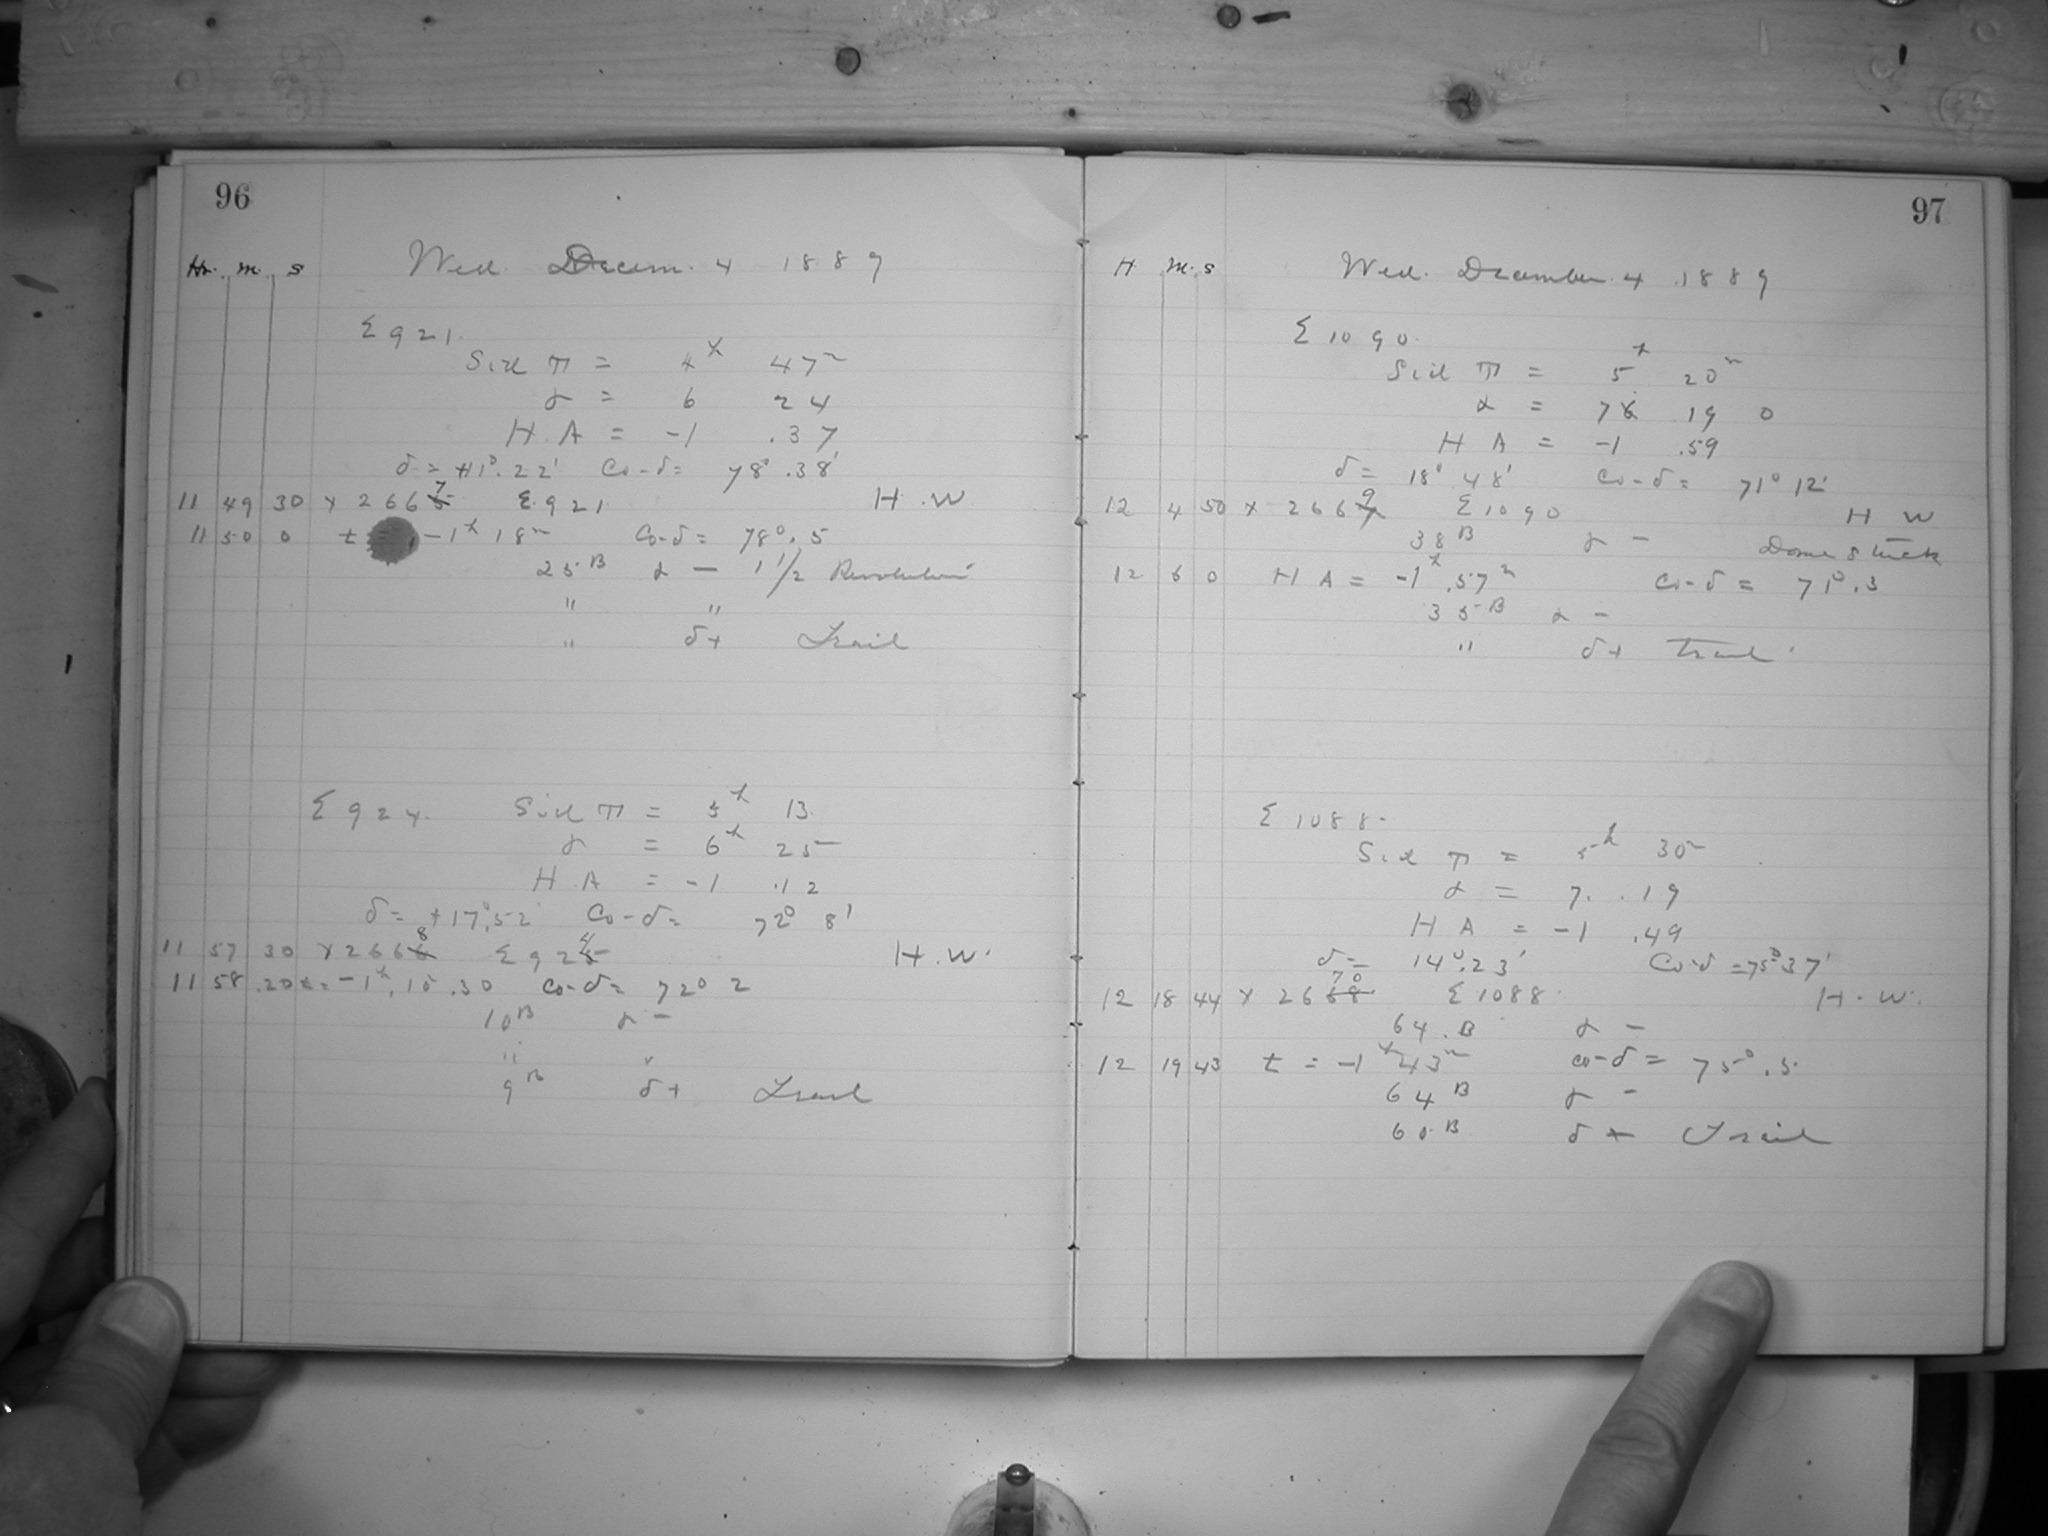 96
Hr. m. s Wed. Decem. 4 1889
Σ 921.
Sid T = 4h 47m
α = 6 24
H A = -1 .37
δ = +11°.22' Co-δ = 78° .38'
11 49 30 X 2667 Σ 921 H.W
11 50 0 t = -1h 18m Co-δ = 78°.5
25B α - 1 1/2 Revolution
" "
" δ+ Trail
Σ 924. Sid T = 5h 13
α = 6h 25m
H A = -1 .12
δ = +17°.52' Co-δ = 72° 8'
11 57 30 X 2668 Σ 924 H.W.
11 58 .20 t = -1h .10 .30 Co-δ = 72° 2
10B α -
" "
9B δ+ Trail
97
H M. s Wed. December 4 1889
Σ 1090.
Sid T = 5h 20m
α = 7 19 0
H A = -1 .59
δ = 18° 48' Co-δ = 71° 12'
12 4 50 X 2669 Σ 1090 H W
38B α - Dome stuck
12 6 0 H A = -1h .57m Co-δ = 71°.3
35B α -
" δ+ Trail
Σ 1088.
Sid T = 5h 30m
α = 7. .19
H A = -1 .49
δ = 14°.23' Co-δ = 75° 37'
12 18 44 X 2670 Σ 1088. H.W.
64.B α -
12 19 43 t = -1h 43m co-δ = 75°.5
64 B α -
60.B δ + Trail